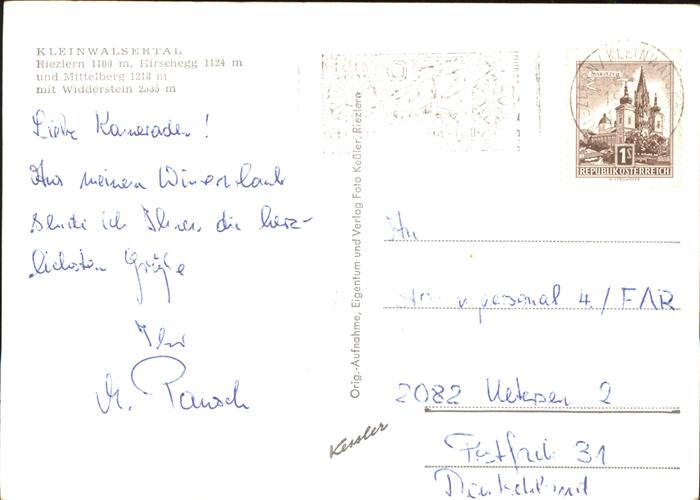 KLEINWALSERTAL
Riezlern 1100 m, Hirschegg 1124 m
und Mittelberg 1218 m
mit Widderstein 2535 m
Liebe Kameraden!
Aus meinem Winterurlaub
sende ich Ihnen die herz-
lichsten Grüße
Ihr
Orig.-Aufnahme, Eigentum und Verlag Foto Keßler, Riezlern
Kessler
Mariazell
1S
REPUBLIK ÖSTERREICH
An
personal 4./FAR
2082 Uetersen 2
Postfach 31